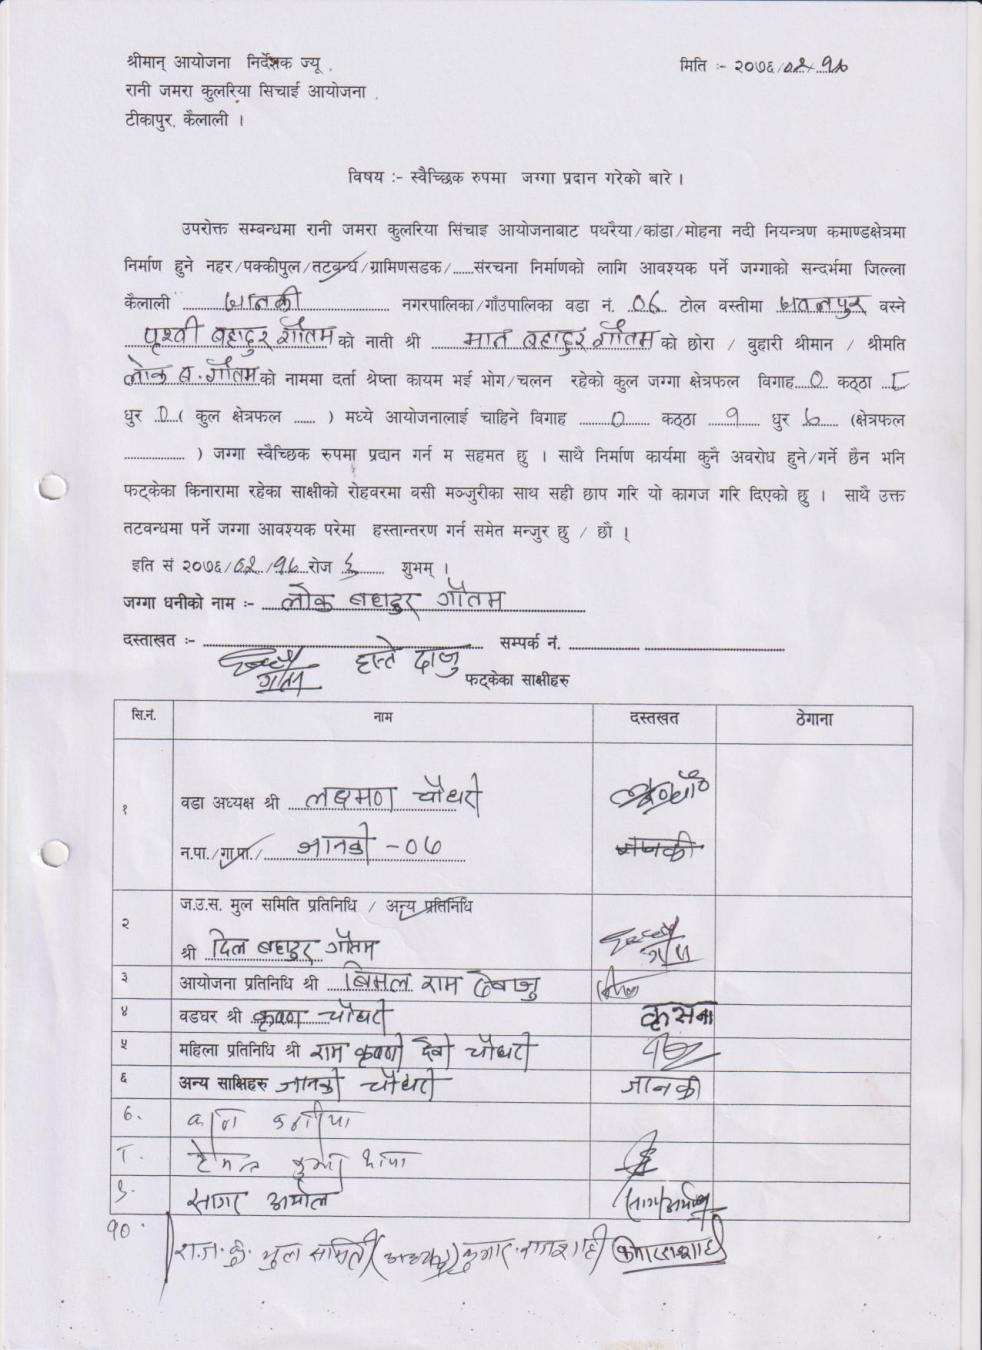 श्रीमान् आयोजना निर्देशक ज्यू,
मिति :- २०७६/०२/१७
रानी जमरा कुलरिया सिचाई आयोजना,
टीकापुर, कैलाली ।
विषय :- स्वैच्छिक रुपमा जग्गा प्रदान गरेको बारे ।
उपरोक्त सम्बन्धमा रानी जमरा कुलरिया सिंचाइ आयोजनाबाट पथरैया/कांडा/मोहना नदी नियन्त्रण कमाण्डक्षेत्रमा
निर्माण हुने नहर/पक्कीपुल/तटबन्ध/ग्रामिणसडक/......संरचना निर्माणको लागि आवश्यक पर्ने जग्गाको सन्दर्भमा जिल्ला
कैलाली जानकी नगरपालिका/गाँउपालिका वडा नं. ०७ टोल वस्तीमा वस्ने
पृथ्वी बहादुर गौतम को नाती श्री मान बहादुर गौतम को छोरा / बुहारी श्रीमान / श्रीमति
लोक ब. गौतम को नाममा दर्ता श्रेष्ता कायम भई भोग/चलन रहेको कुल जग्गा क्षेत्रफल विगाह ० कठ्ठा ८
धुर ० ( कुल क्षेत्रफल ...... ) मध्ये आयोजनालाई चाहिने विगाह ० कठ्ठा १ धुर ७ (क्षेत्रफल
.................. ) जग्गा स्वैच्छिक रुपमा प्रदान गर्न म सहमत छु । साथै निर्माण कार्यमा कुनै अवरोध हुने/गर्ने छैन भनि
फट्केका किनारामा रहेका साक्षीको रोहवरमा वसी मञ्जुरीका साथ सही छाप गरि यो कागज गरि दिएको छु । साथै उक्त
तटवन्धमा पर्ने जग्गा आवश्यक परेमा हस्तान्तरण गर्न समेत मन्जुर छु / छौ ।
इति सं २०७६/०२/१७ रोज ६ शुभम् ।
जग्गा धनीको नाम :- लोक बहादुर गौतम
दस्ताखत :- ........ सम्पर्क नं. ........
हस्ते दाजु
फट्केका साक्षीहरु
सि.नं. नाम दस्तखत ठेगाना
१ वडा अध्यक्ष श्री लक्ष्मण चौधरी
न.पा./गा.पा./ जानकी -०७ जानकी
२ ज.उ.स. मुल समिति प्रतिनिधि / अन्य प्रतिनिधि
श्री दिल बहादुर गौतम
३ आयोजना प्रतिनिधि श्री बिमल राम देवाजु
४ वडघर श्री कृष्ण चौधरी कृसना
५ महिला प्रतिनिधि श्री राम कृष्णी देवी चौधरी
६ अन्य साक्षिहरु जानकी चौधरी जानकी
७.
८. थापा
९. सागर अमौल
१०. रा.ज.कु. मुल समिति (अध्यक्ष) कुमार